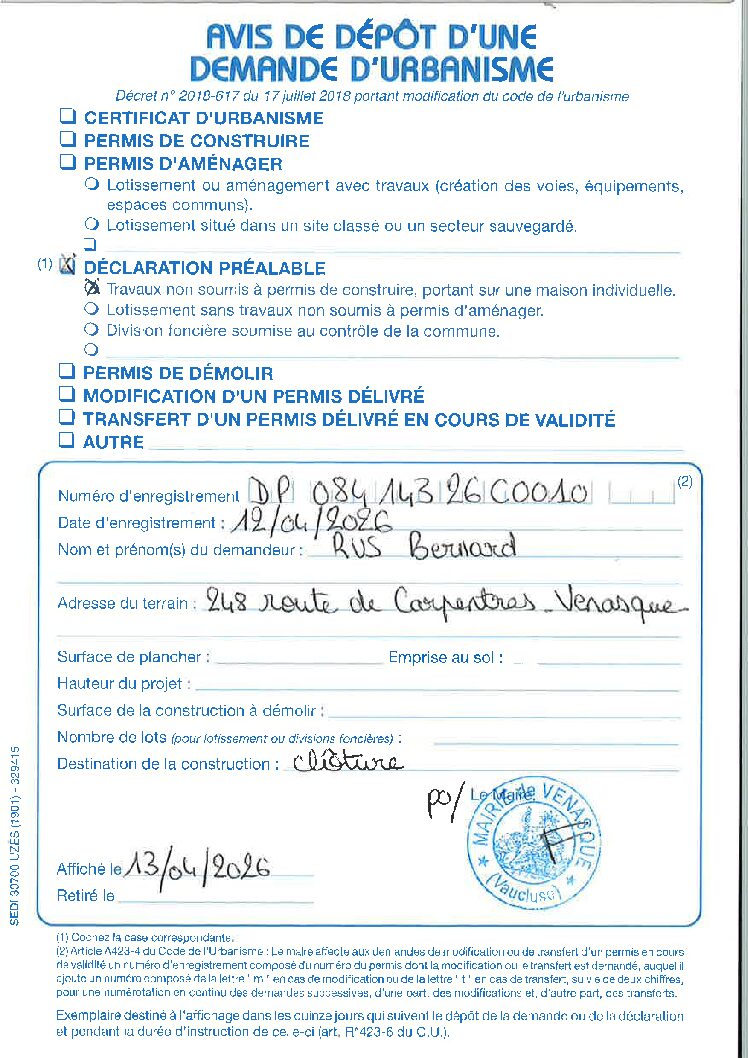 AVIS DE DÉPÔT D'UNE
DEMANDE D'URBANISME
Décret n° 2018-617 du 17 juillet 2018 portant modification du code de l'urbanisme
CERTIFICAT D'URBANISME
PERMIS DE CONSTRUIRE
PERMIS D'AMÉNAGER
Lotissement ou aménagement avec travaux (création des voies, équipements,
espaces communs).
Lotissement situé dans un site classé ou un secteur sauvegardé.
(1) DÉCLARATION PRÉALABLE
Travaux non soumis à permis de construire, portant sur une maison individuelle.
Lotissement sans travaux non soumis à permis d'aménager.
Division foncière soumise au contrôle de la commune.
PERMIS DE DÉMOLIR
MODIFICATION D'UN PERMIS DÉLIVRÉ
TRANSFERT D'UN PERMIS DÉLIVRÉ EN COURS DE VALIDITÉ
AUTRE
Numéro d'enregistrement DP 084 143 26 C0010 (2)
Date d'enregistrement : 12/04/2026
Nom et prénom(s) du demandeur : RUS Bernard
Adresse du terrain : 248 route de Carpentras - Venasque
Surface de plancher : Emprise au sol :
Hauteur du projet :
Surface de la construction à démolir :
Nombre de lots (pour lotissement ou divisions foncières) :
Destination de la construction : clôture
po/ Le Maire,
MAIRIE DE VENASQUE
(Vaucluse)
Affiché le 13/04/2026
Retiré le
SEDI 30700 UZÈS (1901) - 329415
(1) Cochez la case correspondante.
(2) Article A423-4 du Code de l'Urbanisme : Le maire affecte aux demandes de modification ou de transfert d'un permis en cours
de validité un numéro d'enregistrement composé du numéro du permis dont la modification ou le transfert est demandé, auquel il
ajoute un numéro composé de la lettre " m " en cas de modification ou de la lettre " t " en cas de transfert, suivie de deux chiffres,
pour une numérotation en continu des demandes successives, d'une part, des modifications et, d'autre part, des transferts.
Exemplaire destiné à l'affichage dans les quinze jours qui suivent le dépôt de la demande ou de la déclaration
et pendant la durée d'instruction de celle-ci (art. R*423-6 du C.U.).